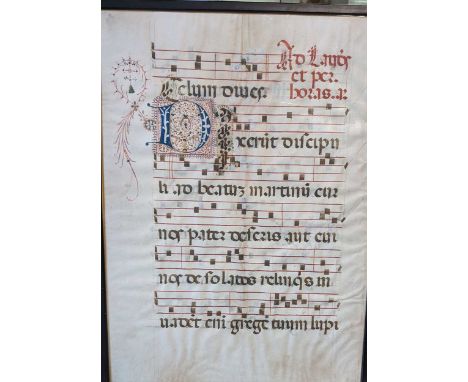 Ad Laudes
et per
horas. a.
celum dives.
Dixerūt discipu
li ad beatuz martinū cur
nos pater deseris aut cui
nos desolatos relinq̄s in
vadēt eni gregē tuum lupi